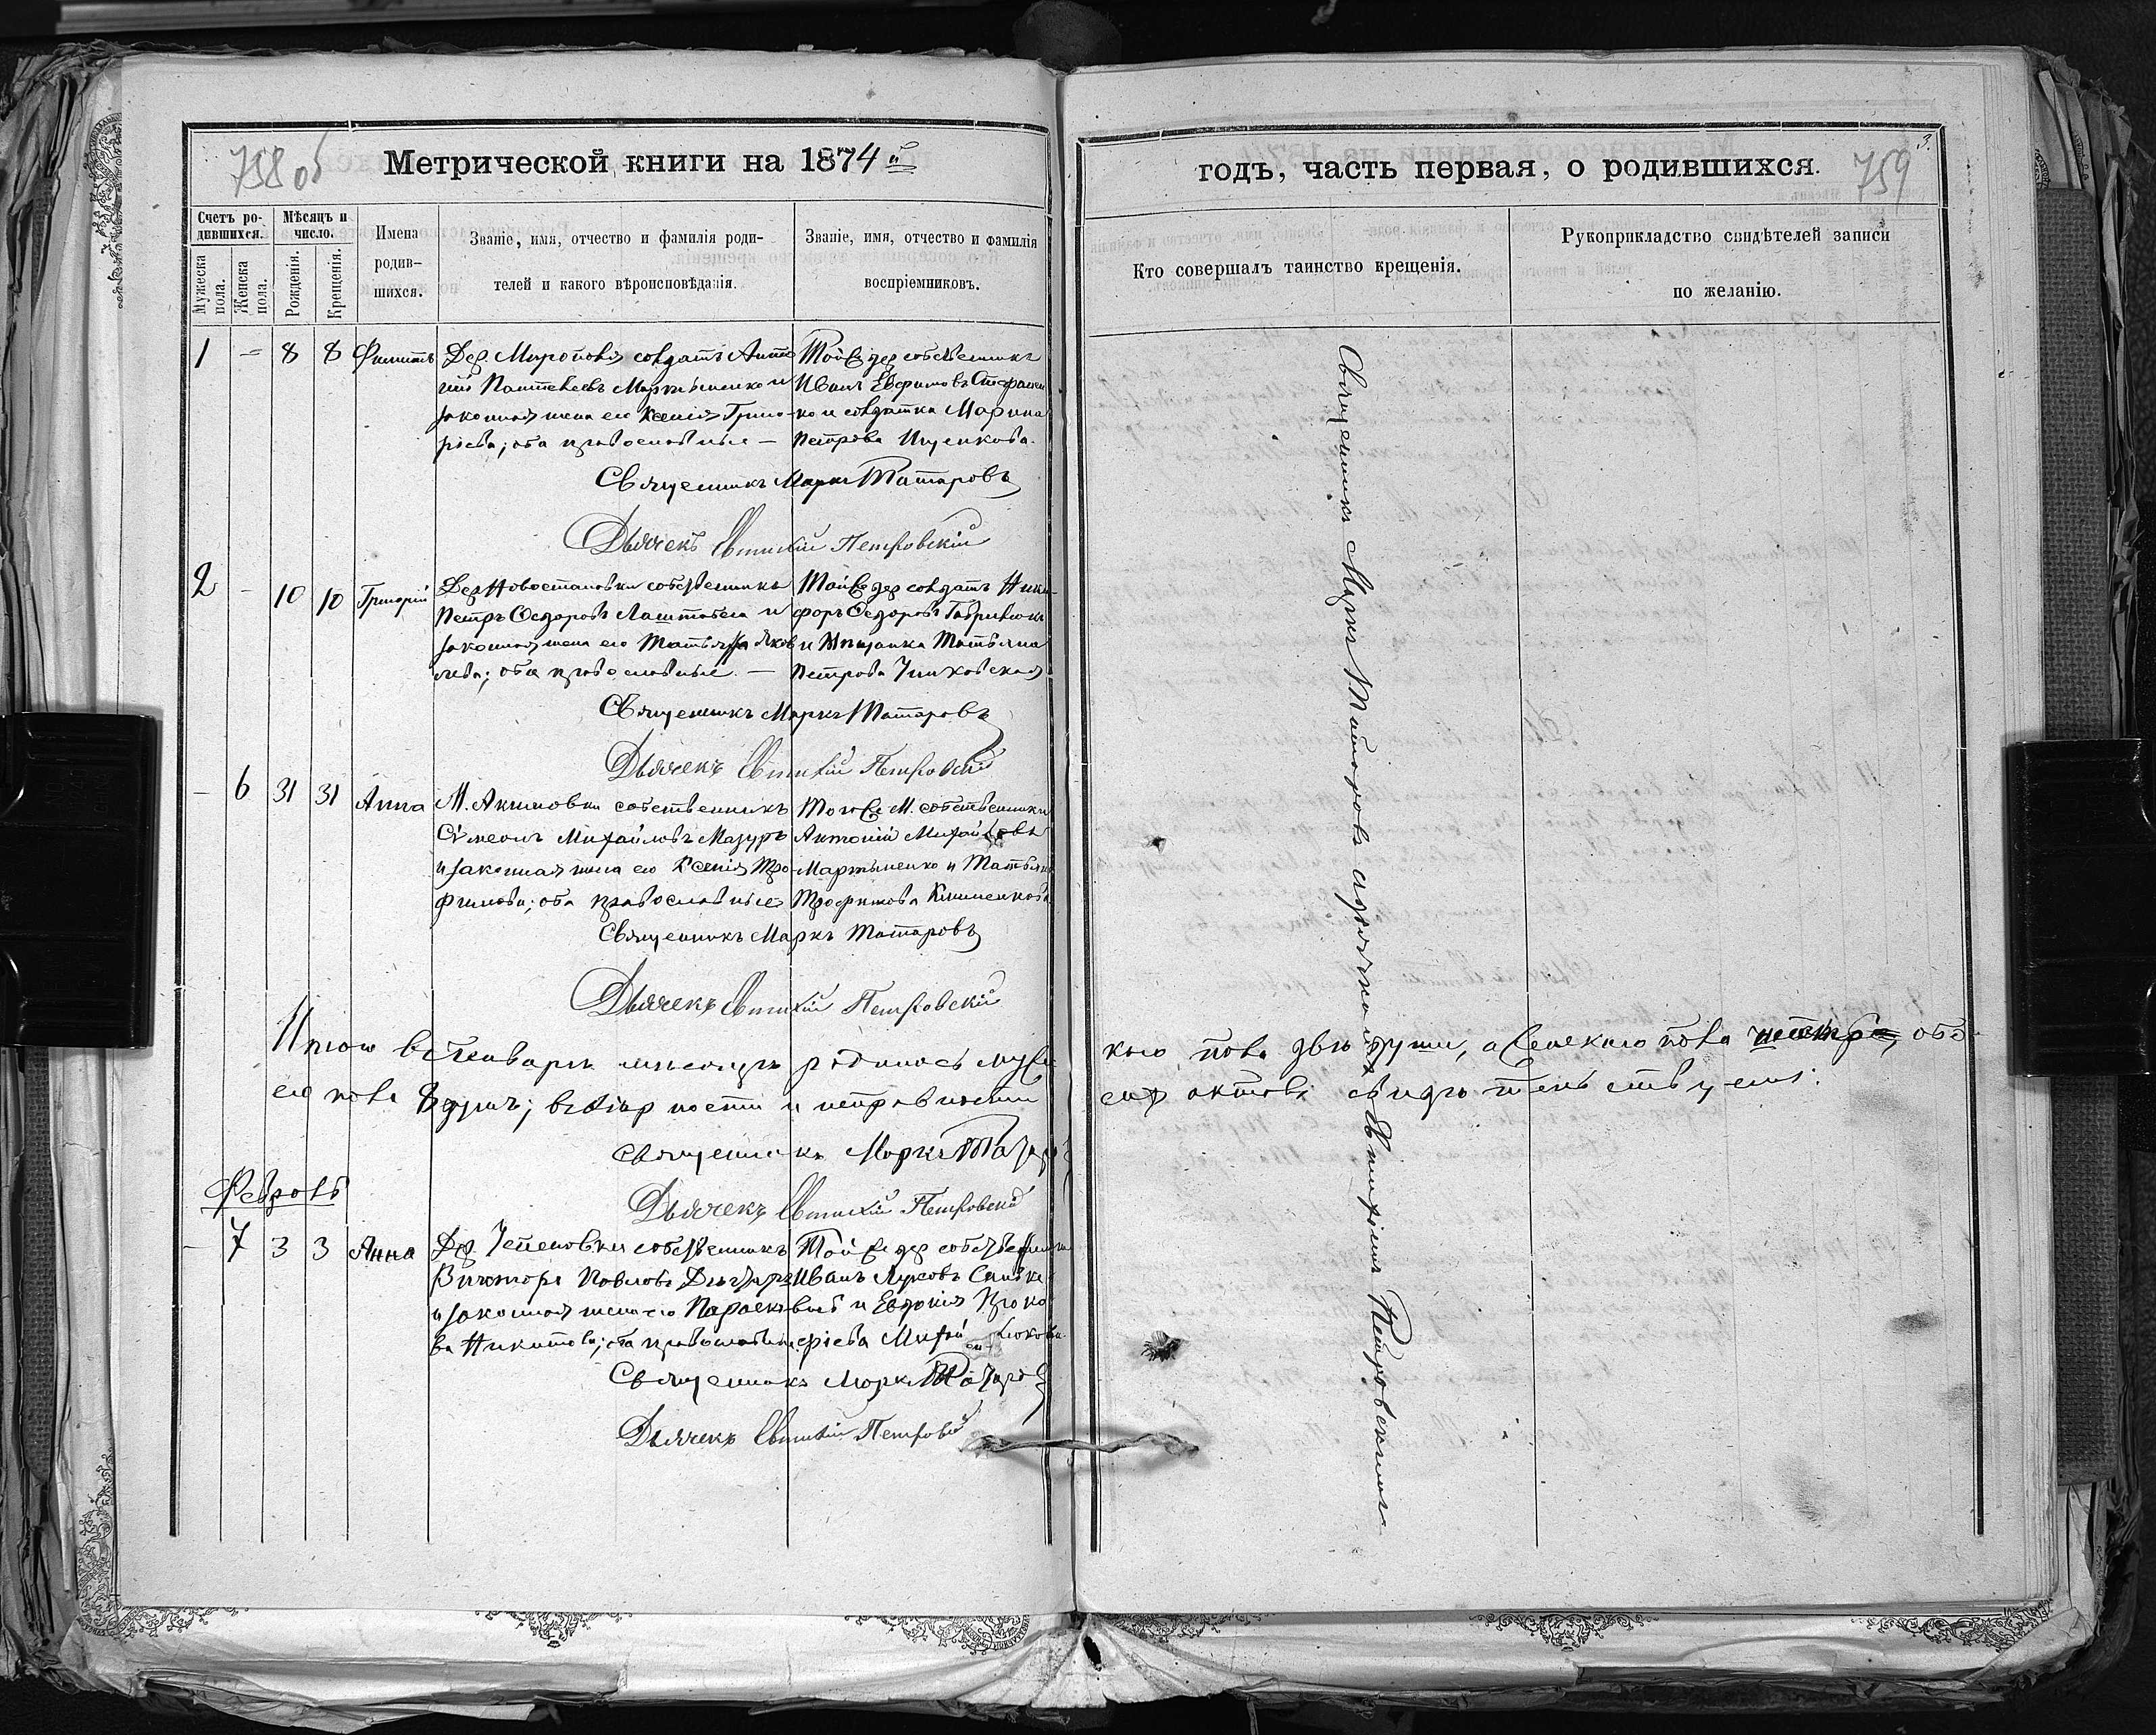 758 об
Метрической книги на 1874 й
Счетъ ро-
дившихся.
Мѣсяцъ и
число.
Мужеска
пола.
Женска
пола.
Рожденія.
Крещенія.
Имена
родив-
шихся.
Званіе, имя, отчество и фамилія роди-
телей и какого вѣроисповѣданія.
Званіе, имя, отчество и фамилія
воспріемниковъ.
1 - 8 8
Дер. солдатъ
законная жена его Ксенія Григо-
рьева; оба православные —
Той же дер собственникъ
Иванъ Ефимовъ
ко и солдатка Марина
Петрова Ищенкова.
Священникъ Маркъ Татаровъ
Дьячекъ Евтихій Петровскій
2 - 10 10 Григорій
Дер Новоставки собственникъ
Петръ Ѳедоровъ и
законная жена его Татьяна Яков
лева; оба православные —
Той же дер солдатъ Ники-
форъ Ѳедоровъ Гаврилюкъ
и Мѣщанка Татьяна
Петрова
Священникъ Маркъ Татаровъ
Дьячекъ Евтихій Петровскій
- 6 31 31 Анна
М. Акимовки собственникъ
Сѵмеонъ Михайловъ Мазуръ
и законная жена его Ксенія Тро-
фимова; оба православные
Того же М. собственникъ
Антоній Михайловъ
Мартыненко и Татьяна
Трофимова Клименкова
Священникъ Маркъ Татаровъ
Дьячекъ Евтихій Петровскій
Итого въ Генварѣ мѣсяцѣ родилось муже
ско пола 2 души; въ вѣрности и исправности
Священникъ Маркъ Татаровъ
Дьячекъ Евтихій Петровскій
Февраль
- 7 3 3 Анна
Дер. собственникъ
Викторъ Павловъ
и законная жена его Параскѣ
ва Никитова; оба православные
Той же дер собственникъ
Иванъ Луковъ
и Евдокія Проко
фіева
Священникъ Маркъ Татаровъ
Дьячекъ Евтихій Петровскій
годъ, часть первая, о родившихся.
3.
759
Кто совершалъ таинство крещенія.
Рукоприкладство свидѣтелей записи
по желанію.
Священникъ Маркъ Татаровъ съ дьячкомъ Евтихіемъ Петровскимъ
кого пола двѣ души, а женскаго пола обо-
его актовъ свидѣтельствуемъ: